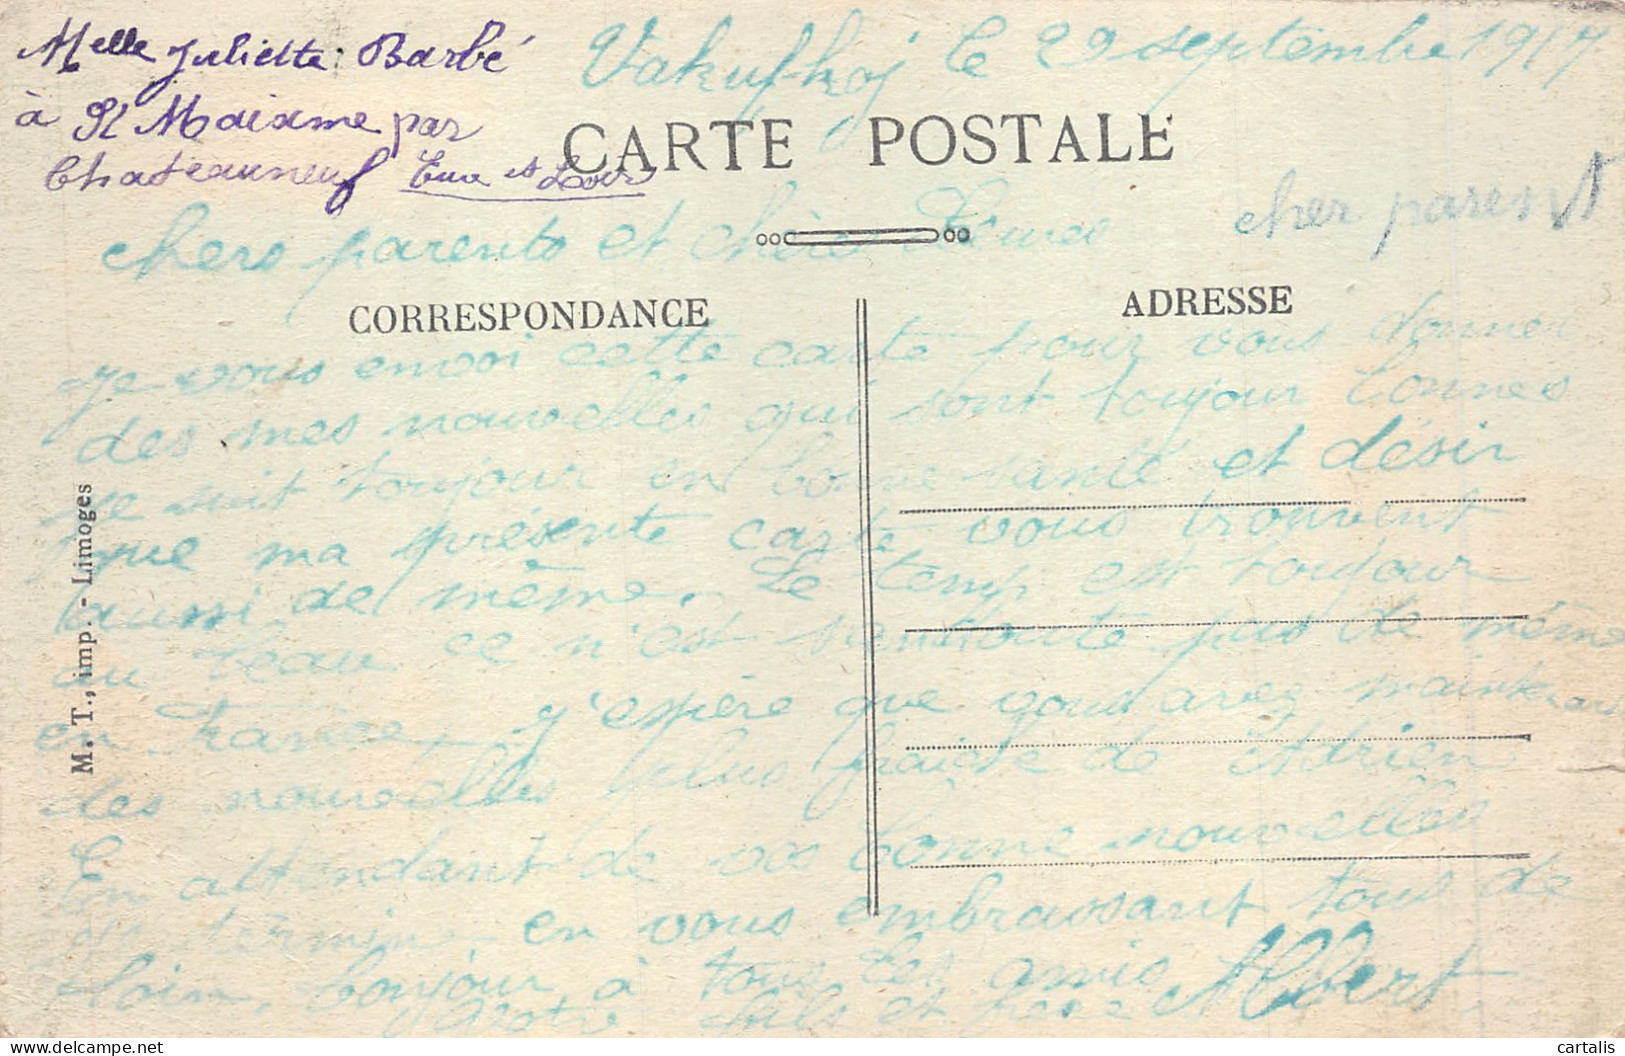 Melle Juliette Barbé
à St Maixme par
Chateauneuf Eure et Loir
Vakuf-koj le 29 septembre 1917
CARTE POSTALE
chers parents et chères
cher parest
CORRESPONDANCE
ADRESSE
Je vous envoi cette carte pour vous donner
des mes nouvelles qui sont toujour bonnes
je suit toujour en bonne santé et désir
que ma présente carte vous trouvent
aussi de même. Le temp est toujour
au beau ce n'est pas de même
en France, j'espère que vous avez maintenant
des nouvelles plus fraiche de Adrien
En attendant de vos bonne nouvelles
je termine en vous embrassant tous de
loin, bonjour à tous les amis Albert
Votre fils et
M. T., imp. - Limoges
cartalis